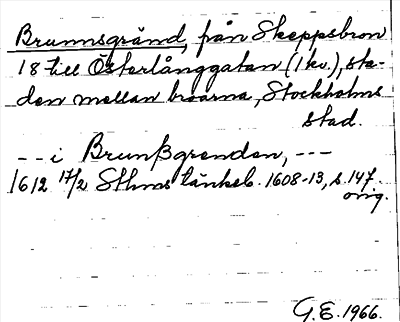 Brunnsgränd, från Skeppsbron
18 till Österlånggatan (1 kv.), sta-
den mellan broarna, Stockholms
stad.
-- i Brunßgrenden, ---
1612 17/2 Sthms tänkeb. 1608-13, s. 147.
orig.
G.E. 1966.